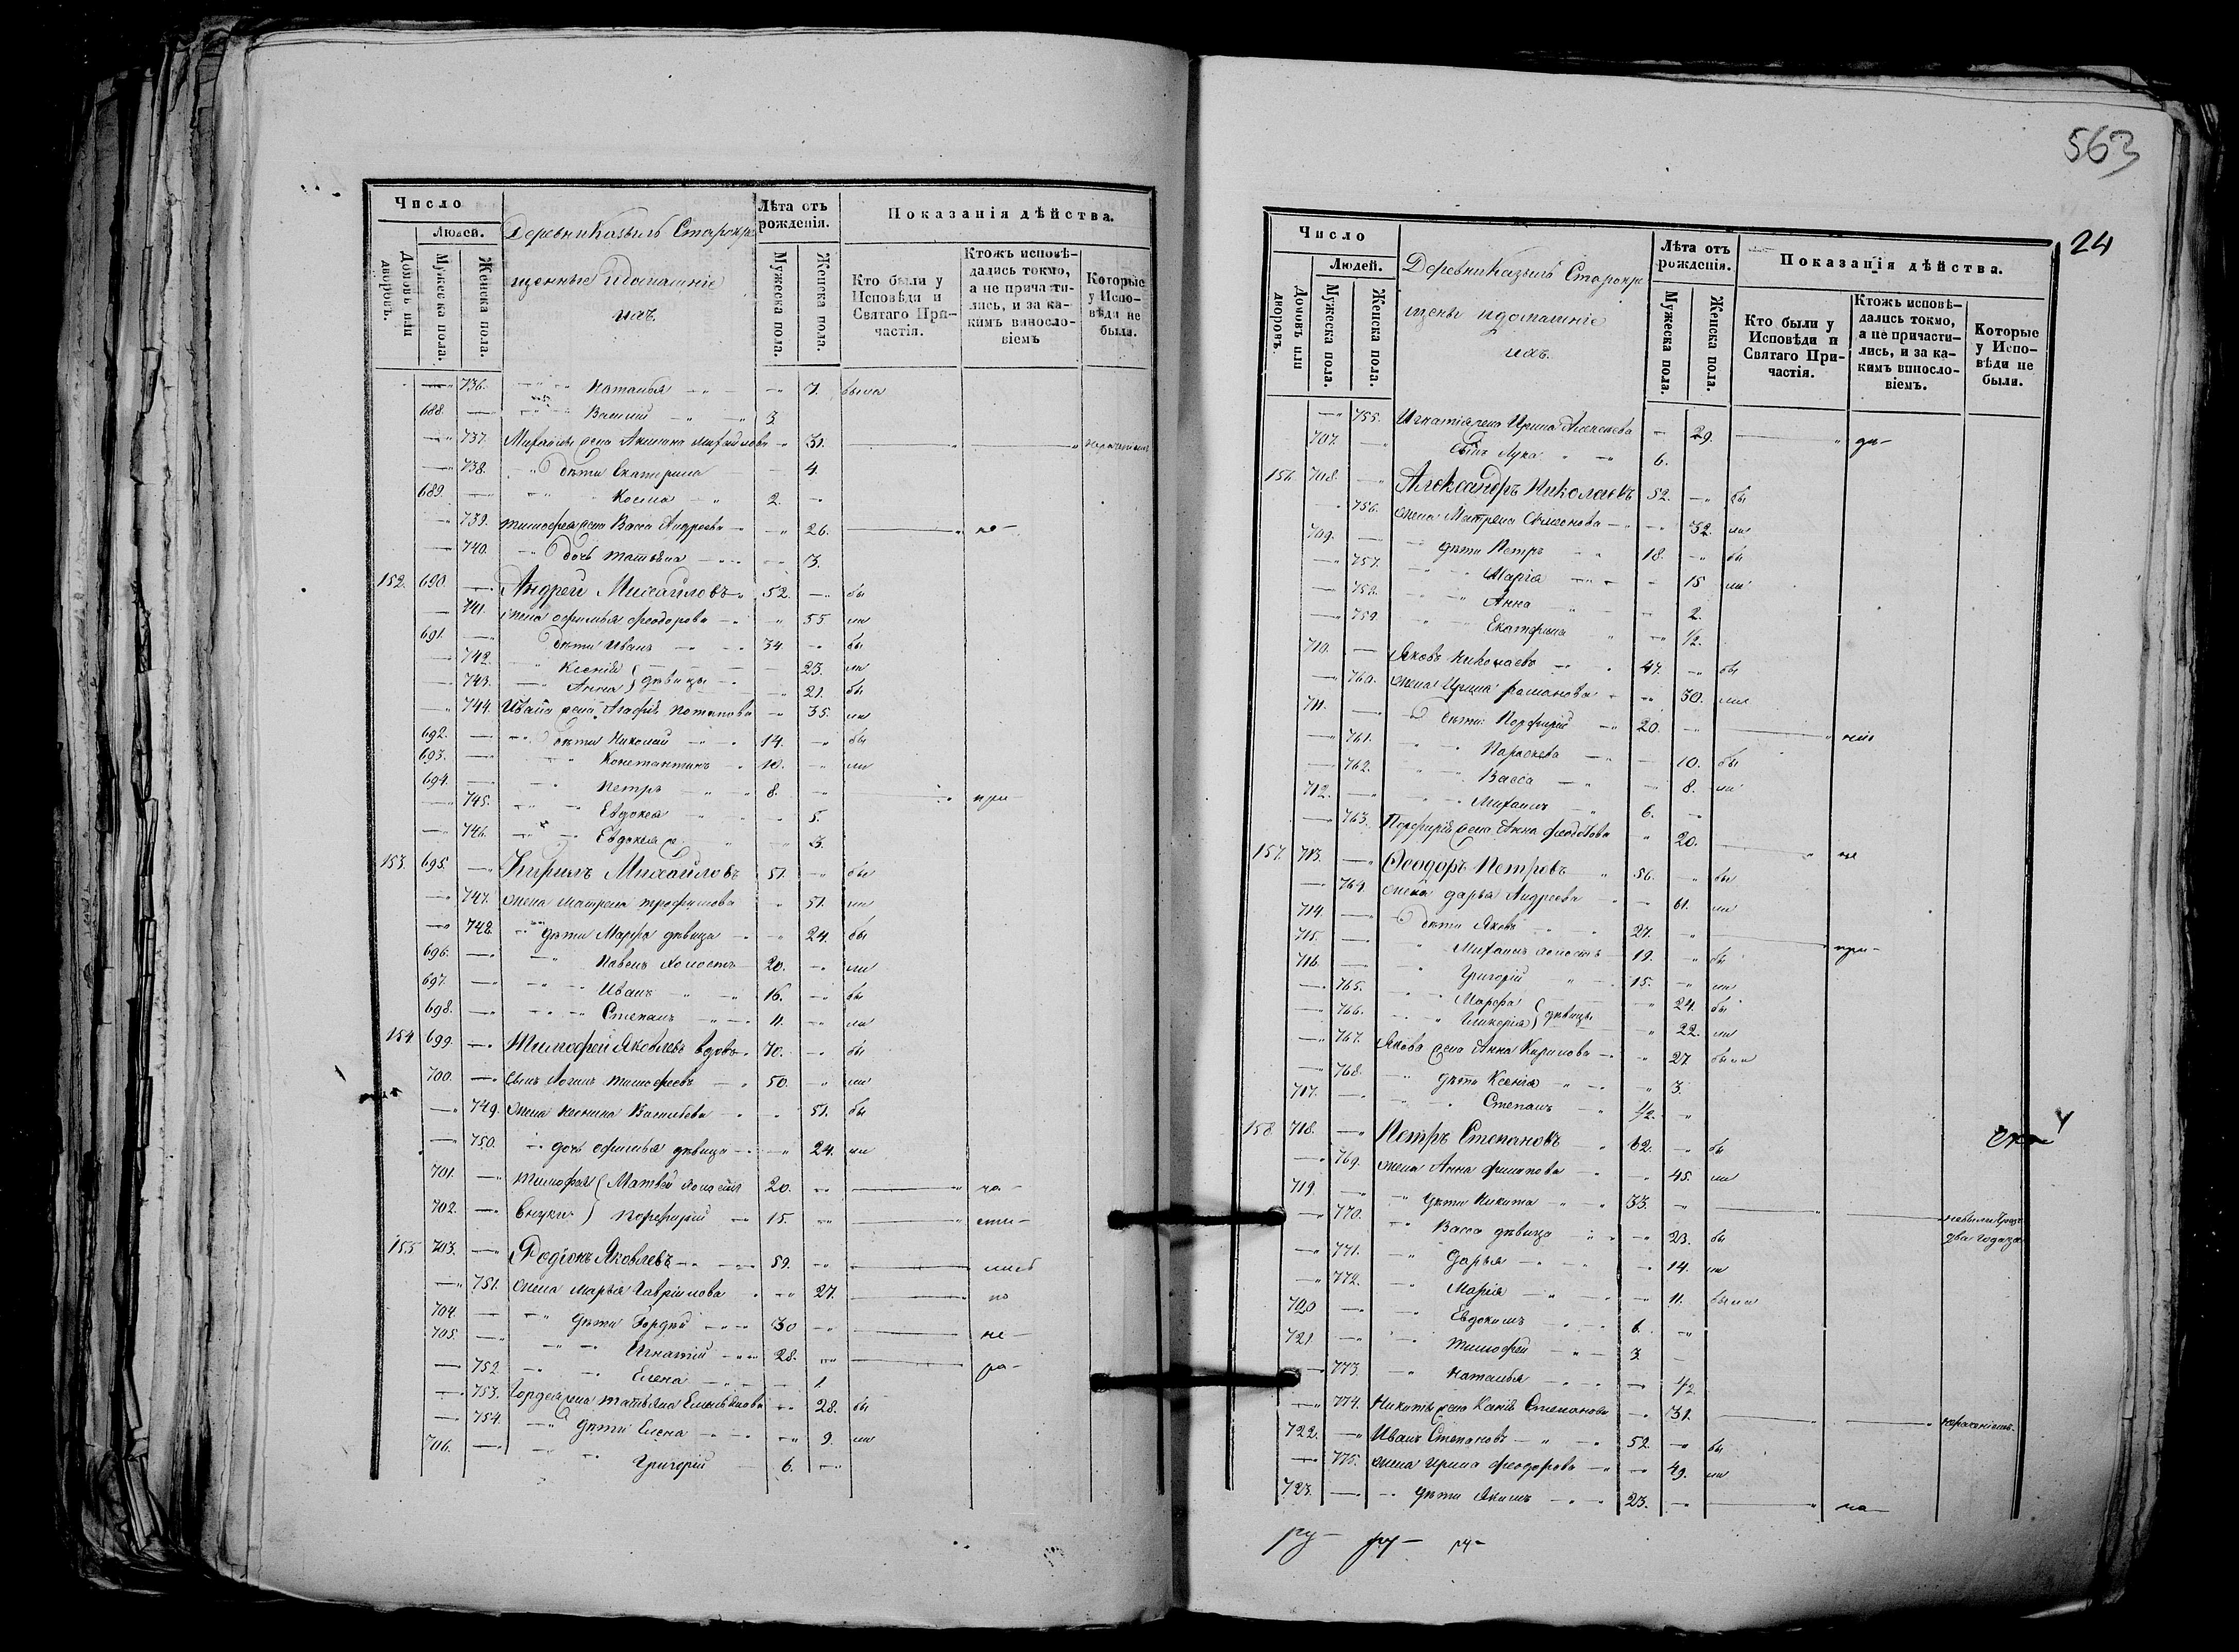 Число
Людей.
Домовъ или дворовъ.
Мужеска пола.
Женска пола.
Деревни Казылъ Старокре
щенные и домашніе
ихъ.
Лѣта отъ рожденія.
Мужеска пола.
Женска пола.
Показанія дѣйства.
Кто были у Исповѣди и Святаго Причастія.
Ктожъ исповѣдались токмо, а не причастились, и за какимъ винословіемъ
Которые у Исповѣди не были.
736. Наталья 7. была
688. Василій 3.
737. Михаила жена Акилина Михайлова 31.
738. дѣти Екатерина 4
689. Косма 2.
739. Тимофея жена Васса Андреева 26. не
740. дочь Татьяна 3.
152. 690. Андрей Михайловъ 52. бы
741. жена Офимья Феодорова 55 ли
691. дѣти Иванъ 34. бы
742. Ксенія 23. ли
743. Анна } дѣвицы 21. бы
744. Ивана жена Агафія Потапова 35. ли
692. дѣти Николай 14. бы
693. Константинъ 10. ли
694. Петръ 8. при-
745. Евдокея 5.
746. Евдокея 3.
153. 695. Кирилъ Михайловъ 51. бы
747. жена Матрена Трофимова 51. ли
748. дѣти Марфа дѣвица 24. бы
696. Павелъ холостъ 20. ли
697. Иванъ 16. бы
698. Степанъ 11. ли
154 699. Тимофей Яковлевъ вдовъ 70. бы
700. сынъ Логинъ Тимофеевъ 50. ли
749. жена Васильева 51. бы
750. дочь Офимья дѣвица 24. ли
701. Тимофея { Матвей холостъ 20. ча-
702. внуки } Порфирій 15. сти-
155 703. Родіонъ Яковлевъ 59. лись
751. жена Марья Гаврилова 27. по
704. дѣти Гордей 30 не-
705. Игнатій 28. ра-
752 Елена 1.
753. Гордея жена Татьяна Емельянова 28. бы
754. дѣти Елена 9. ли
706. Григорій 6.
563
24
Число
Людей.
Домовъ или дворовъ.
Мужеска пола.
Женска пола.
Деревни Казылъ Старокре
щены и домашніе
ихъ.
Лѣта отъ рожденія.
Мужеска пола.
Женска пола.
Показанія дѣйства.
Кто были у Исповѣди и Святаго Причастія.
Ктожъ исповѣдались токмо, а не причастились, и за какимъ винословіемъ.
Которые у Исповѣди не были.
755. Игнатія жена Ирина Алексеева 29. дѣ-
707. сынъ Лука 6.
156. 708. Александръ Николаевъ 52. бы
756. жена Матрена Семенова 52. ли
709. дѣти Петръ 18. бы
757. Марія 15 ли
758. Анна 2.
759. Екатерина 1/2.
710. Яковъ Николаевъ 47. бы
760. жена Ирина Романова 50. ли
711. дѣти Порфирій 20. нію
761. Параскева 10. бы
762. Васса 8. ли
712. Михаилъ 6.
763. Порфирія жена Анна Федотова 20. не
157. 713. Феодоръ Петровъ 56. бы
764. жена Дарья Андреева 61. ли
714. дѣти Яковъ 27. при-
715. Михаилъ холостъ 19. бы
716. Григорій 15. ли
765. Марфа 24. бы
766. Гликерія } дѣвицы 22. ли
767. Якова жена Анна Кирилова 27. была
768. дѣти Ксенія 3.
717. Степанъ 1/2.
158. 718. Петръ Степановъ 62. бы
769. жена Анна Филипова 45. ли
719. дѣти Никита 33. небыли
770. Васса дѣвица 23. бы два года
771. Дарья 14. ли
772. Марія 11. была
720 Евдокимъ 6.
721. Тимофей 3.
773. Наталья 1/2
774. Никиты жена Ксенія Степанова 31.
722. Иванъ Степановъ 52. бы
775. жена Ирина Феодорова 49. ли
723. дѣти Якимъ 23. ча-
ру- ру- ру-